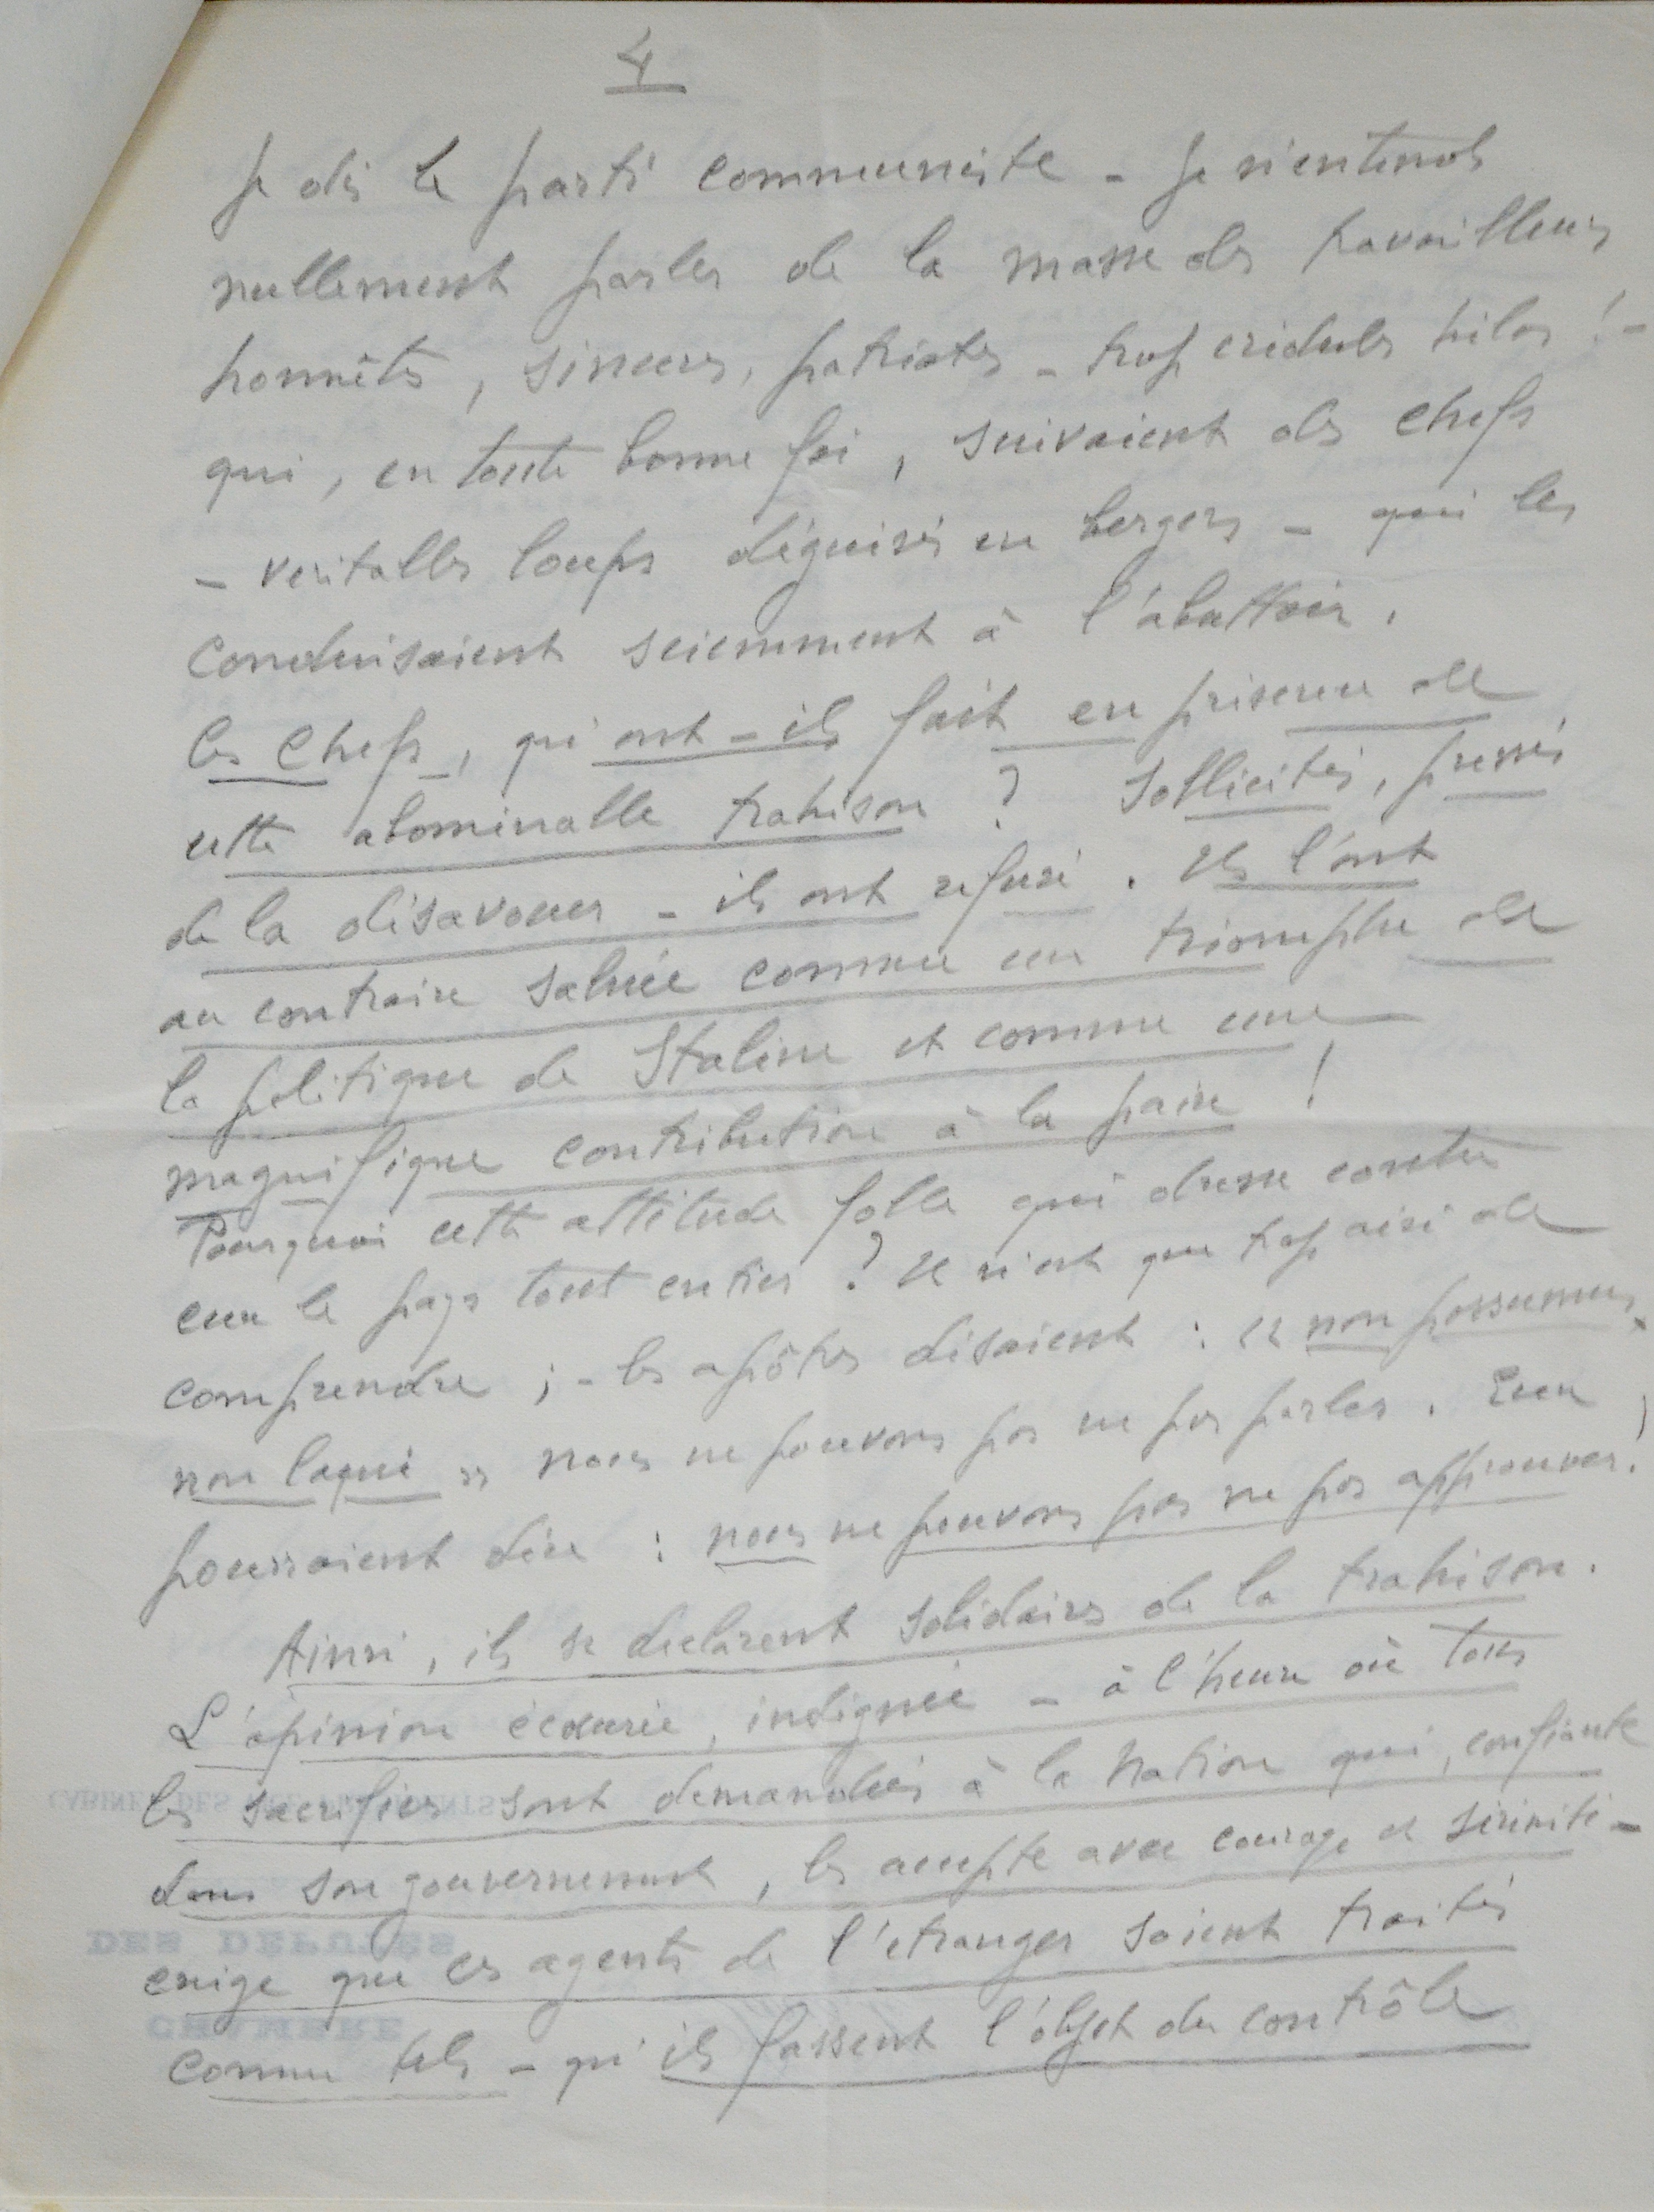 4
Je dis le parti communiste - Je n'entends
nullement parler de la masse des travailleurs
honnêtes, sincères, patriotes - trop crédules hélas ! -
qui, en toute bonne foi, suivaient des chefs
- veritables loups déguisés en bergers - qui les
conduisaient sciemment à l'abattoir.
Ces chefs, qu'ont-ils fait en présence de
cette abominable trahison ? Sollicités, pressés
de la désavouer - ils ont refusé. Ils l'ont
au contraire saluée comme un triomphe de
la politique de Staline et comme une
magnifique contribution à la paix !
Pourquoi cette attitude folle qui dresse contre
eux le pays tout entier ? Il n'est que trop aisé de
comprendre ; - les apôtres disaient : « non possumus
non loqui » nous ne pouvons pas ne pas parler. Eux
pourraient dire : nous ne pouvons pas ne pas approuver !
Ainsi, ils se declarent solidaires de la trahison.
L'opinion écœurée, indignée - à l'heure où tous
les sacrifices sont demandés à la Nation qui, confiante
dans son gouvernement, les accepte avec courage et sérénité -
exige que ces agents de l'etranger soient traités
comme tels - qu'ils fassent l'objet du contrôle
CHAMBRE
DES DEPUTES
CABINET DES